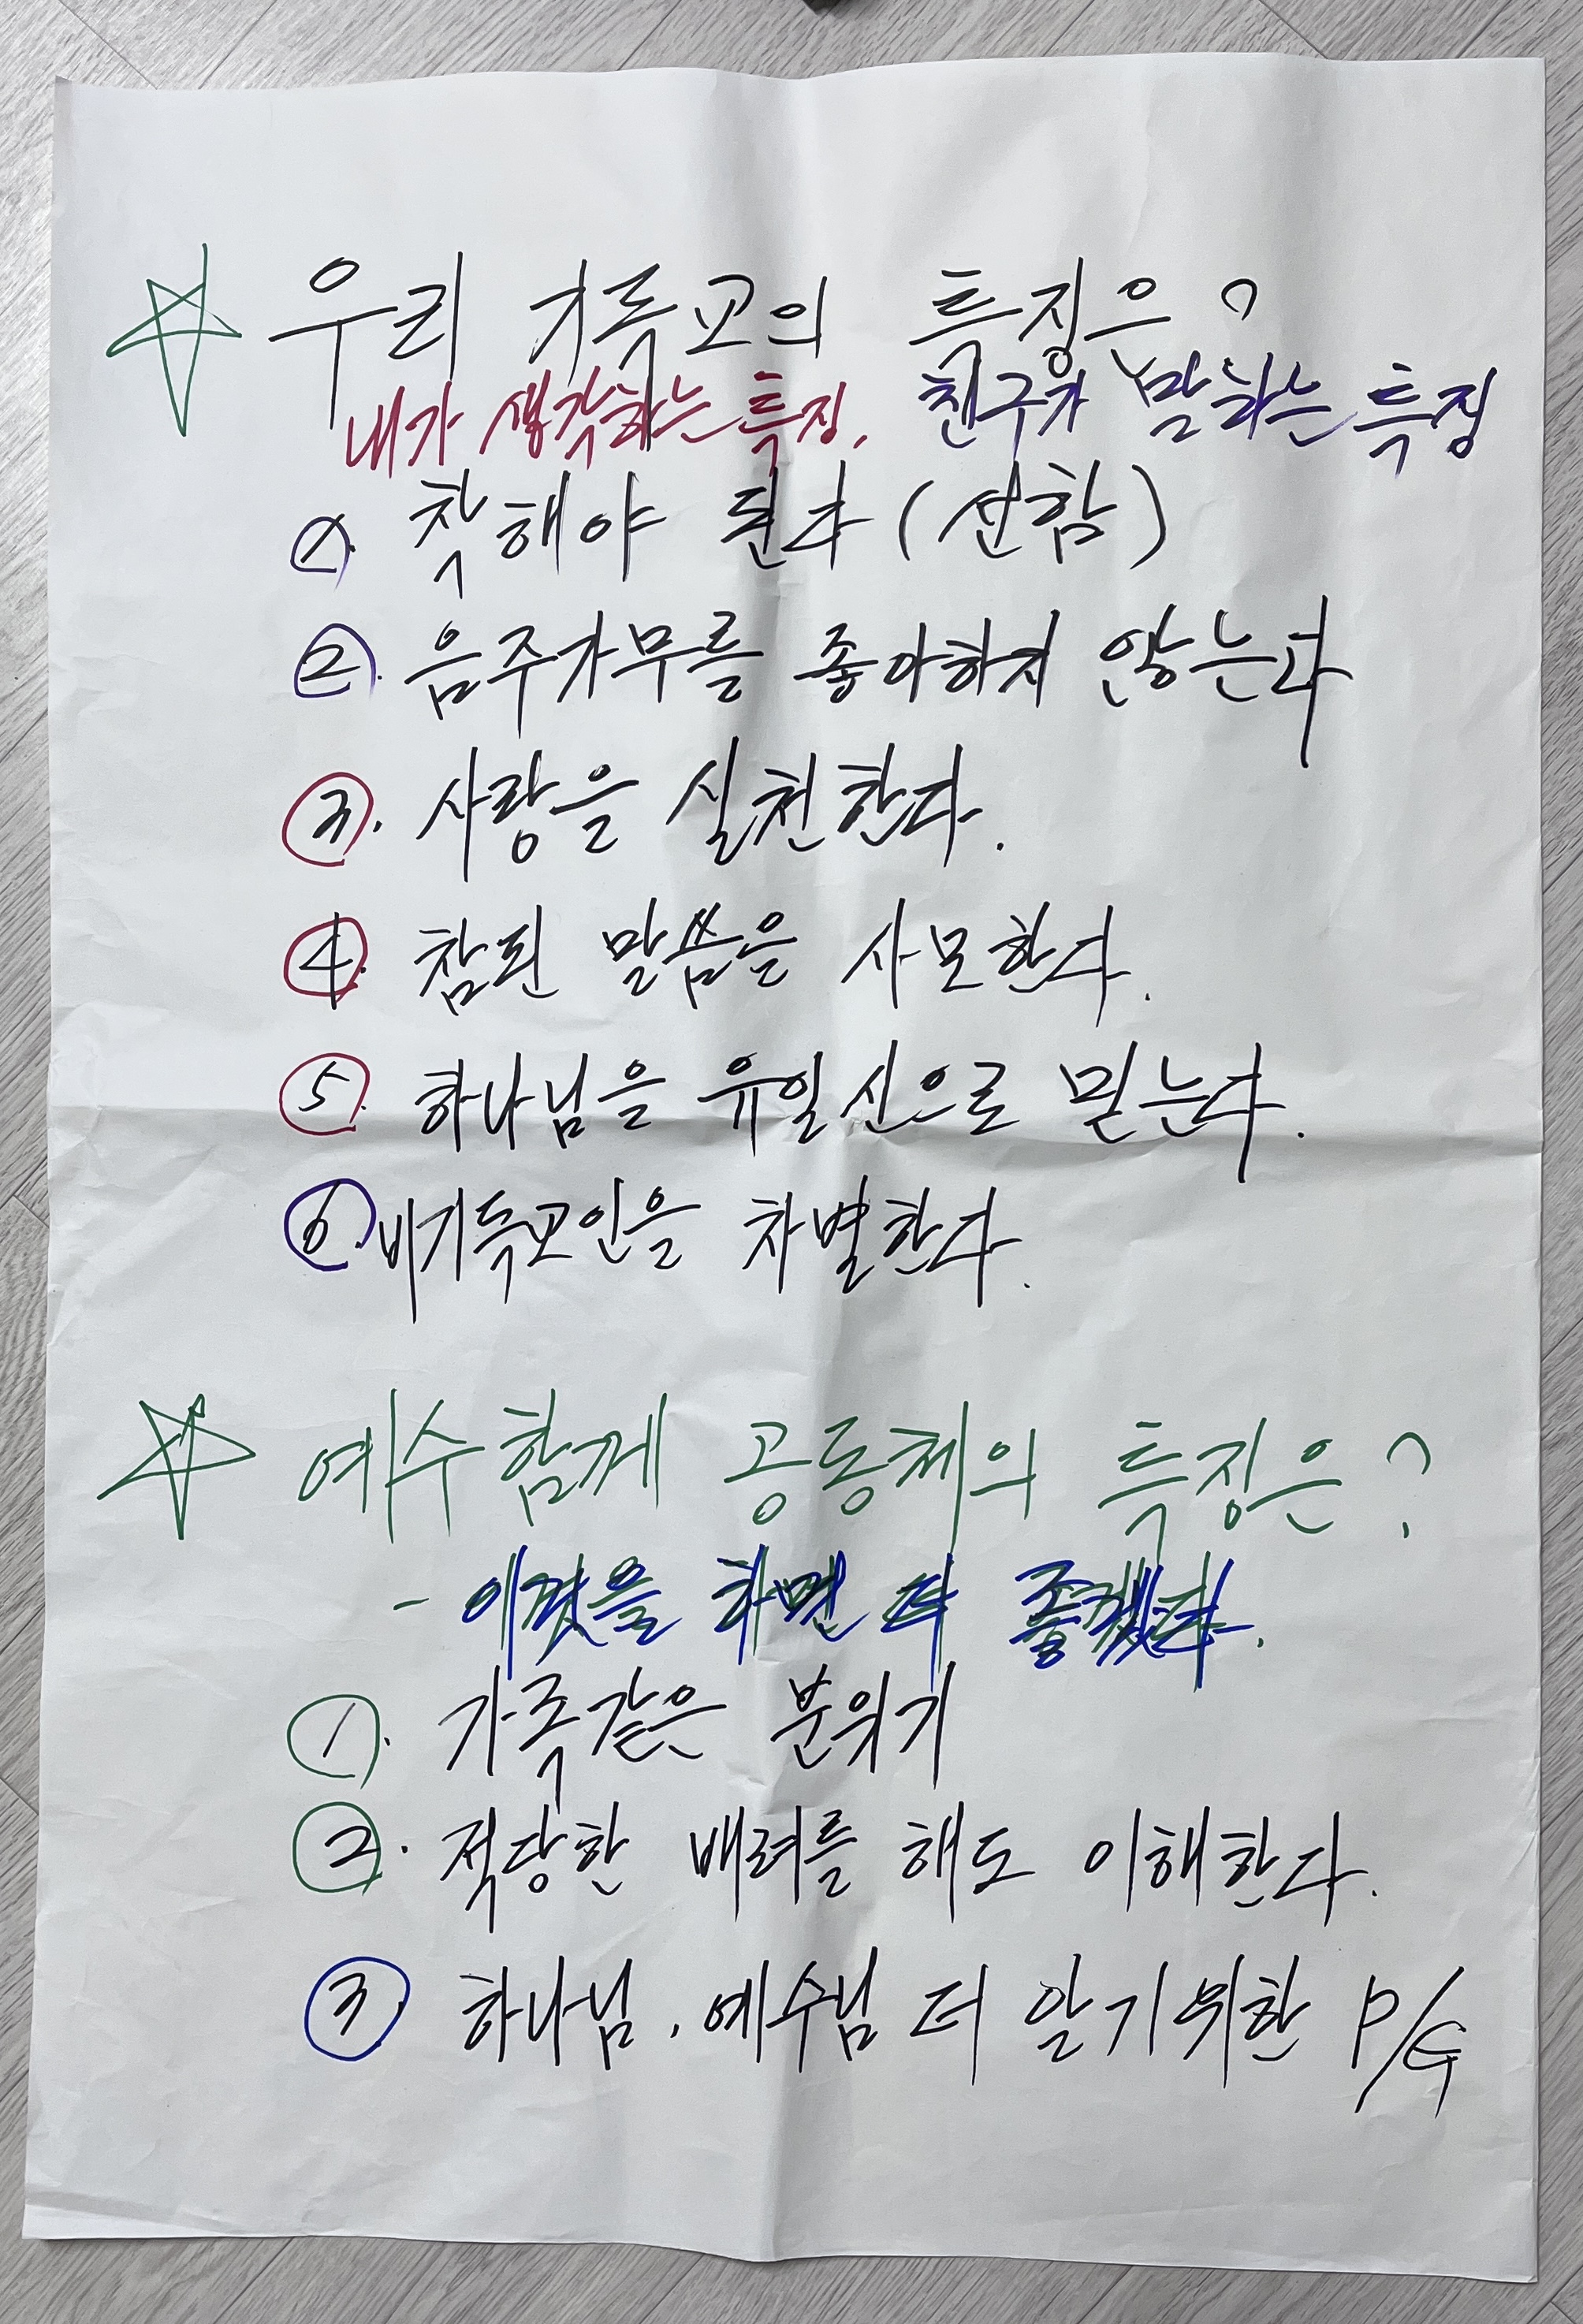 ☆ 우리 기독교의 특징은?
내가 생각하는 특징, 친구가 말하는 특징
①. 착해야 된다 (선함)
②. 음주가무를 좋아하지 않는다
③. 사랑을 실천한다.
④. 참된 말씀을 사모한다.
⑤. 하나님을 유일신으로 믿는다.
⑥. 비기독교인을 차별한다.
☆ 예수함께 공동체의 특징은?
- 이것을 하면 더 좋겠다.
①. 가족같은 분위기
②. 적당한 배려를 해도 이해한다.
③. 하나님, 예수님 더 알기위한 P/G